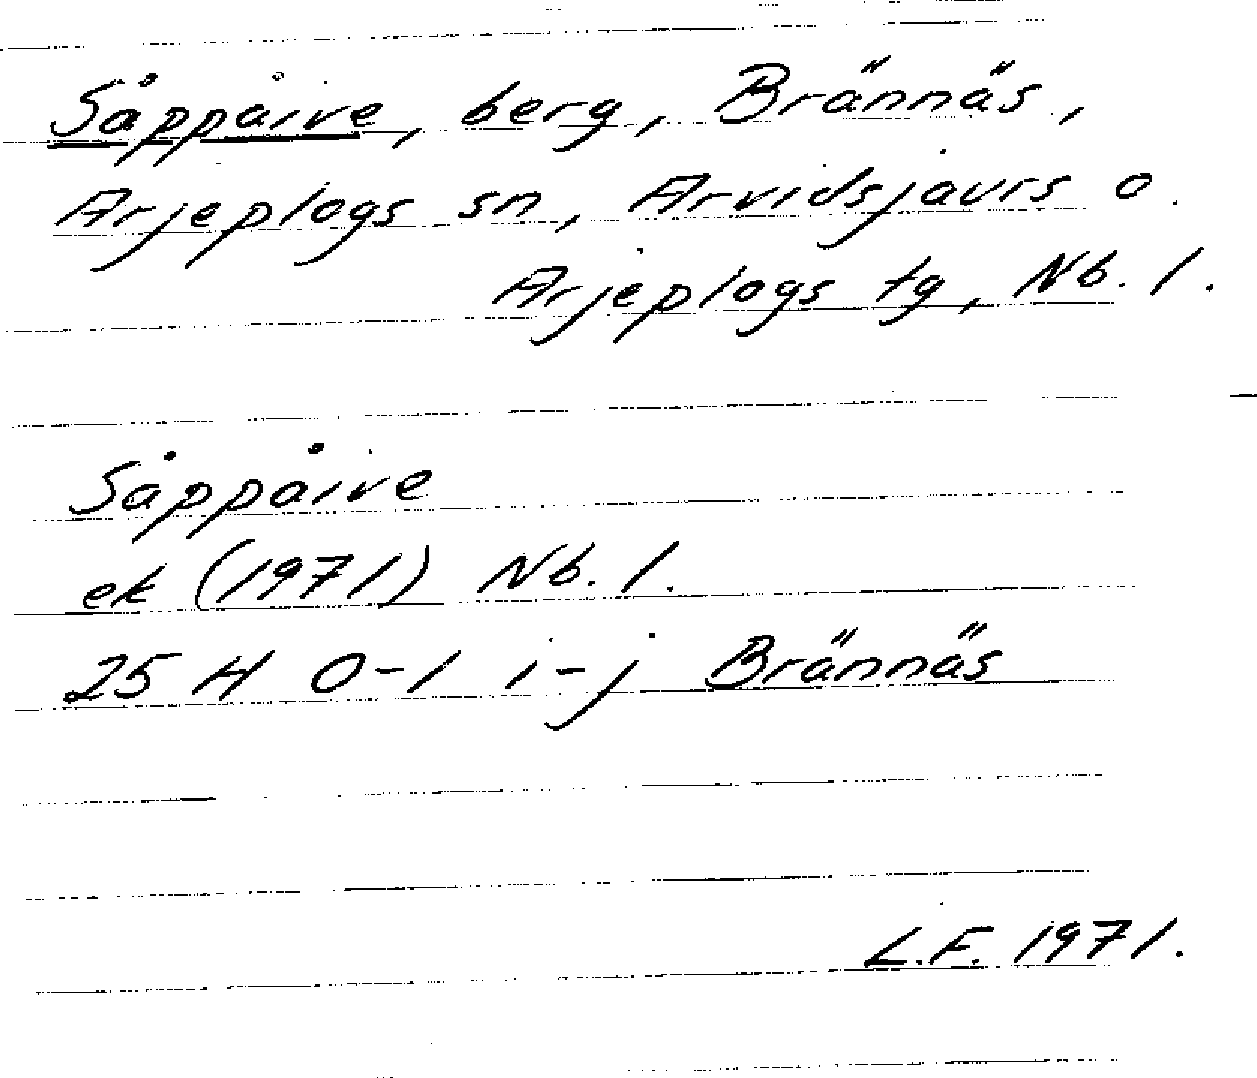 Såppåive, berg, Brännäs,
Arjeplogs sn, Arvidsjaurs o.
Arjeplogs tg, Nb. l.
Såppåive
ek (1971) Nb. l.
25 H 0-1 i-j Brännäs
L.F. 1971.